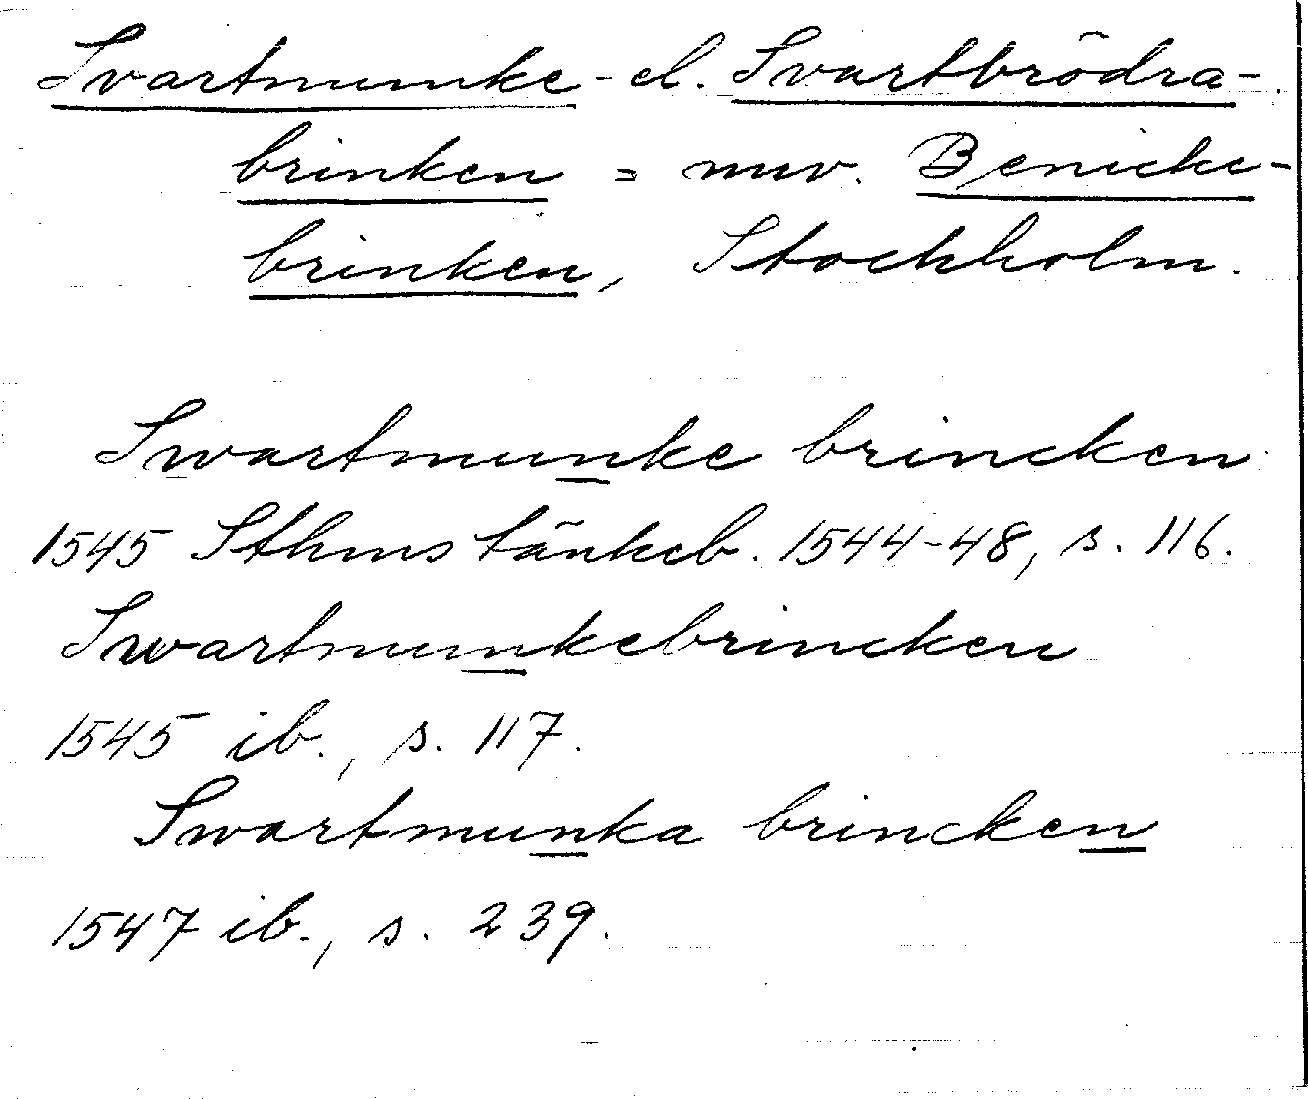 Svartmunke- el. Svartbrödra-
brinken = nuv. Benicke-
brinken, Stockholm.
Swartmunke brincken
1545 Sthms tänkeb. 1544-48, s. 116.
Swartmunkebrincken
1545 ib., s. 117.
Swartmunka brincken
1547 ib., s. 239.